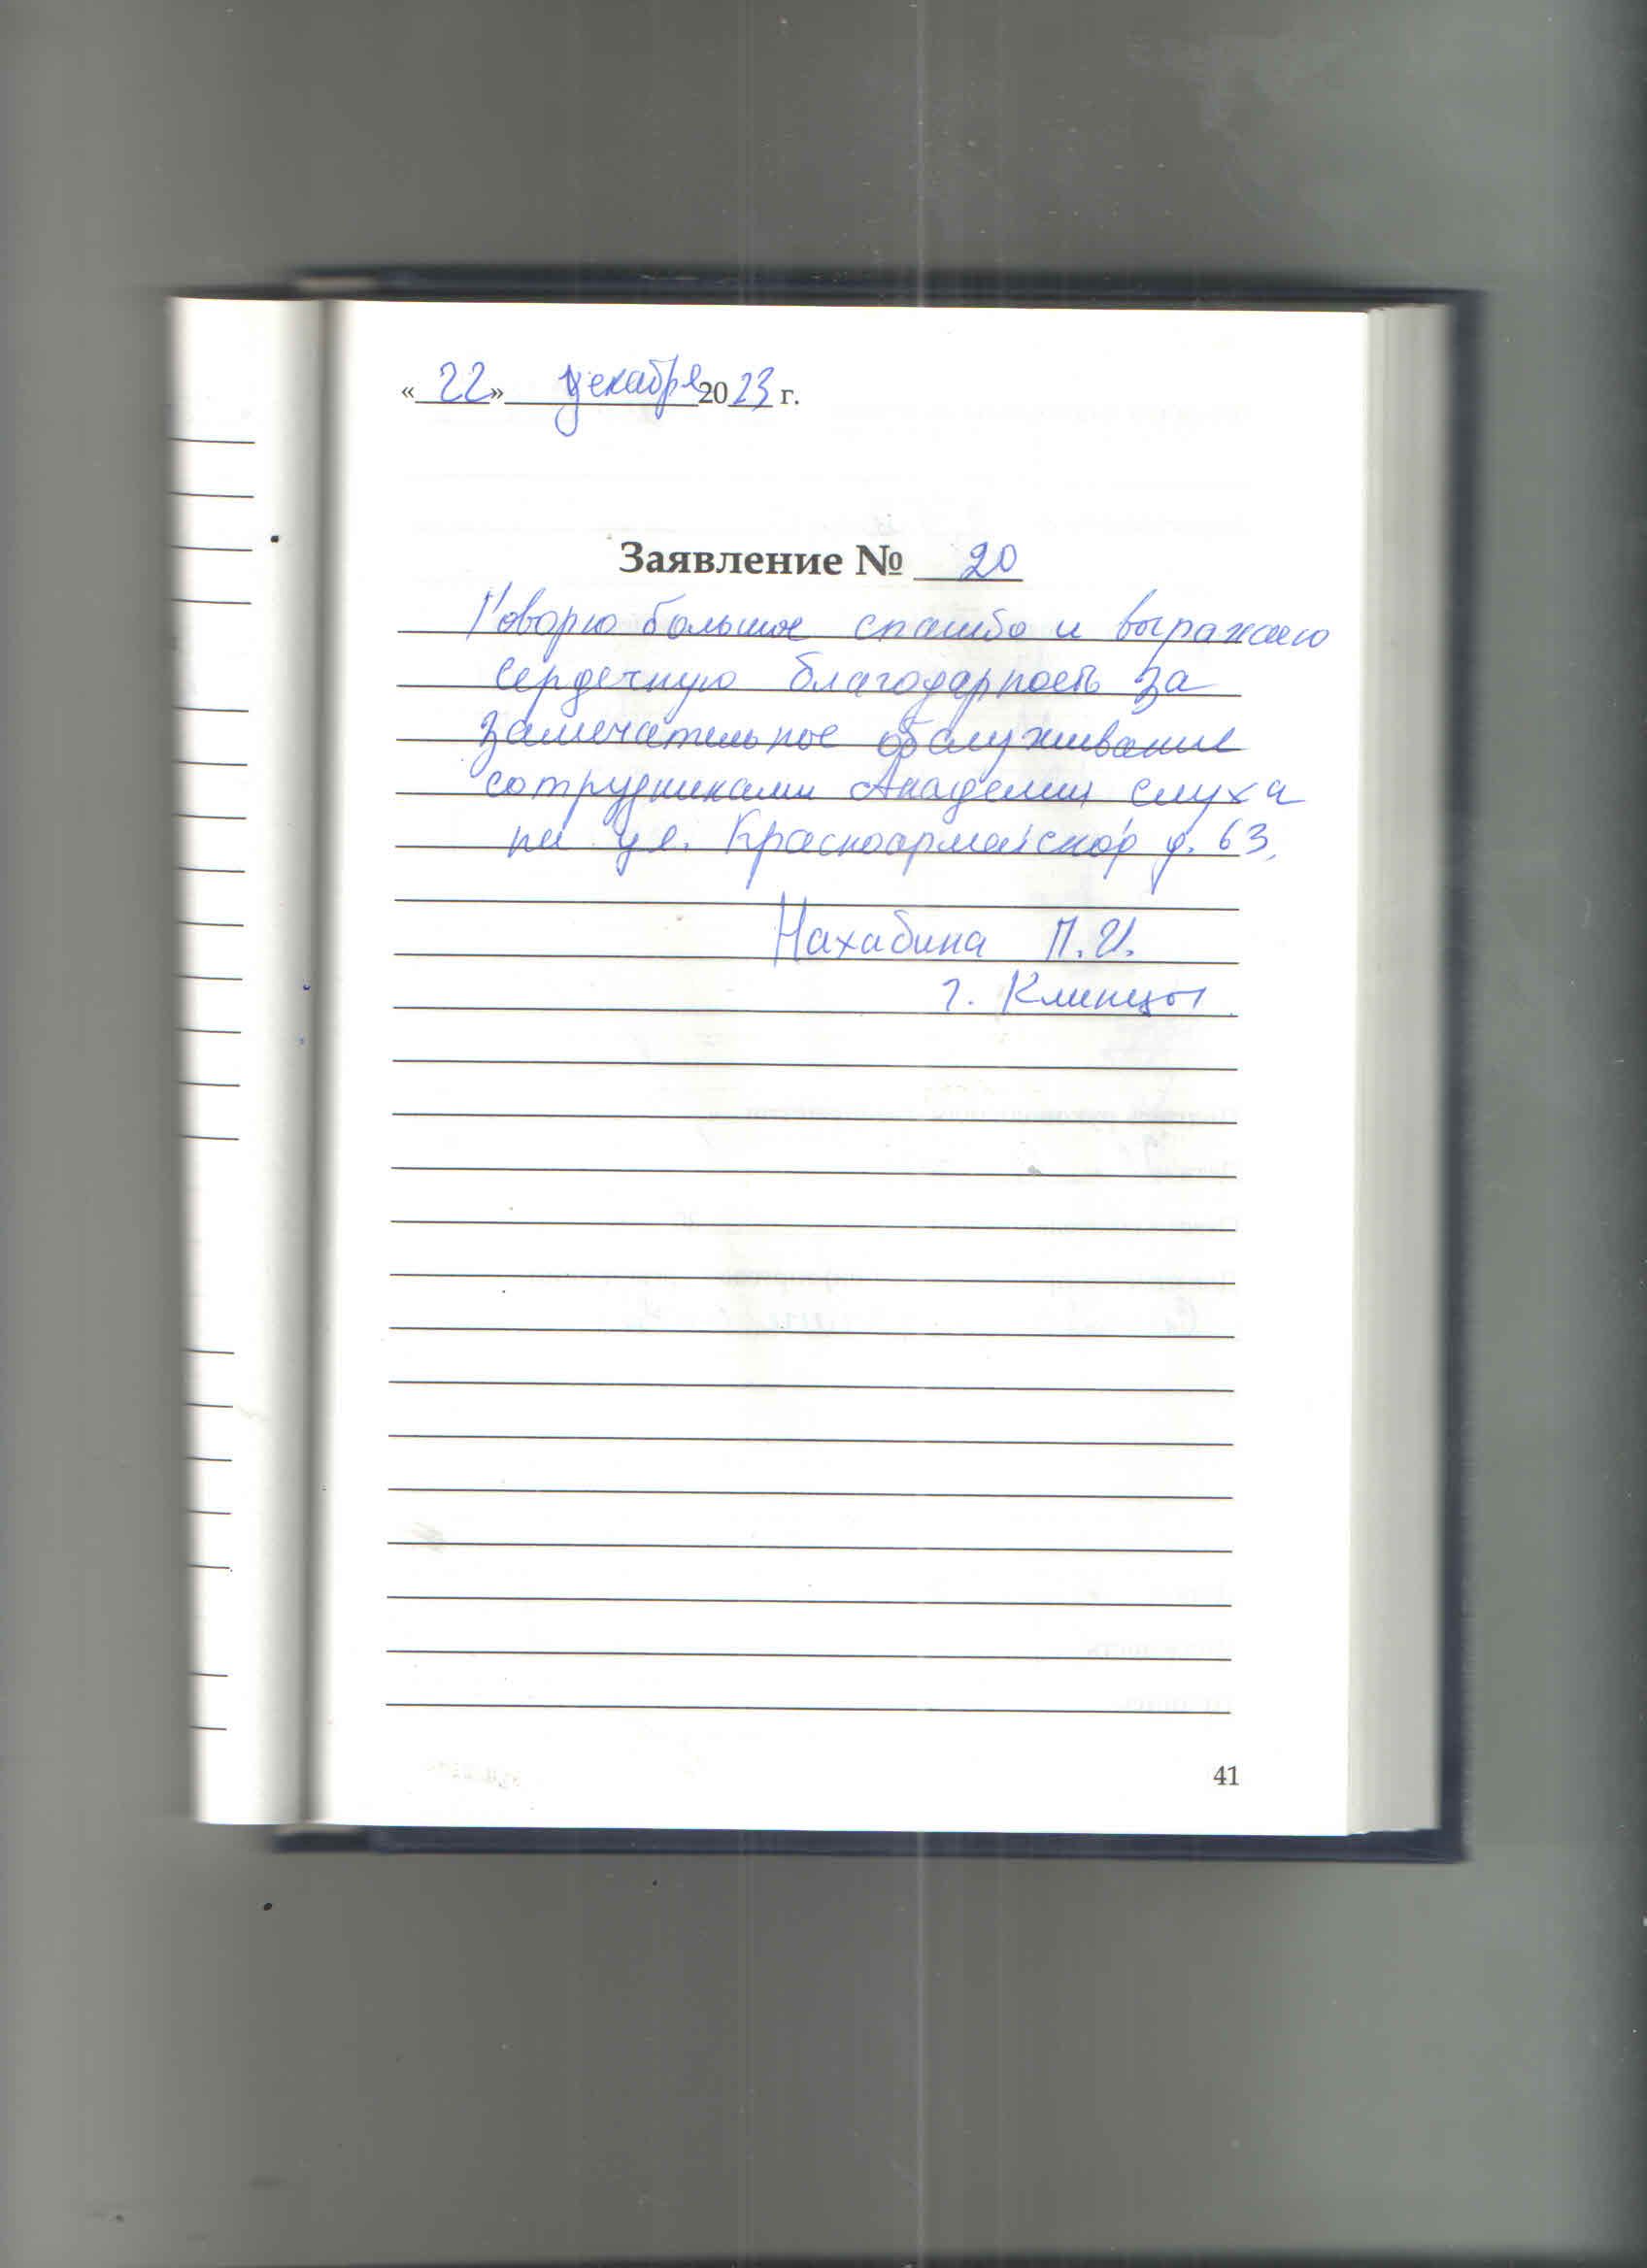 «22» декабря 2023 г.
Заявление № 20
Говорю большое спасибо и выражаю
сердечную благодарность за
замечательное обслуживание
сотрудниками Академии слуха
на ул. Красноармейской д. 63.
Нахабина П.И.
г. Клинцы
41